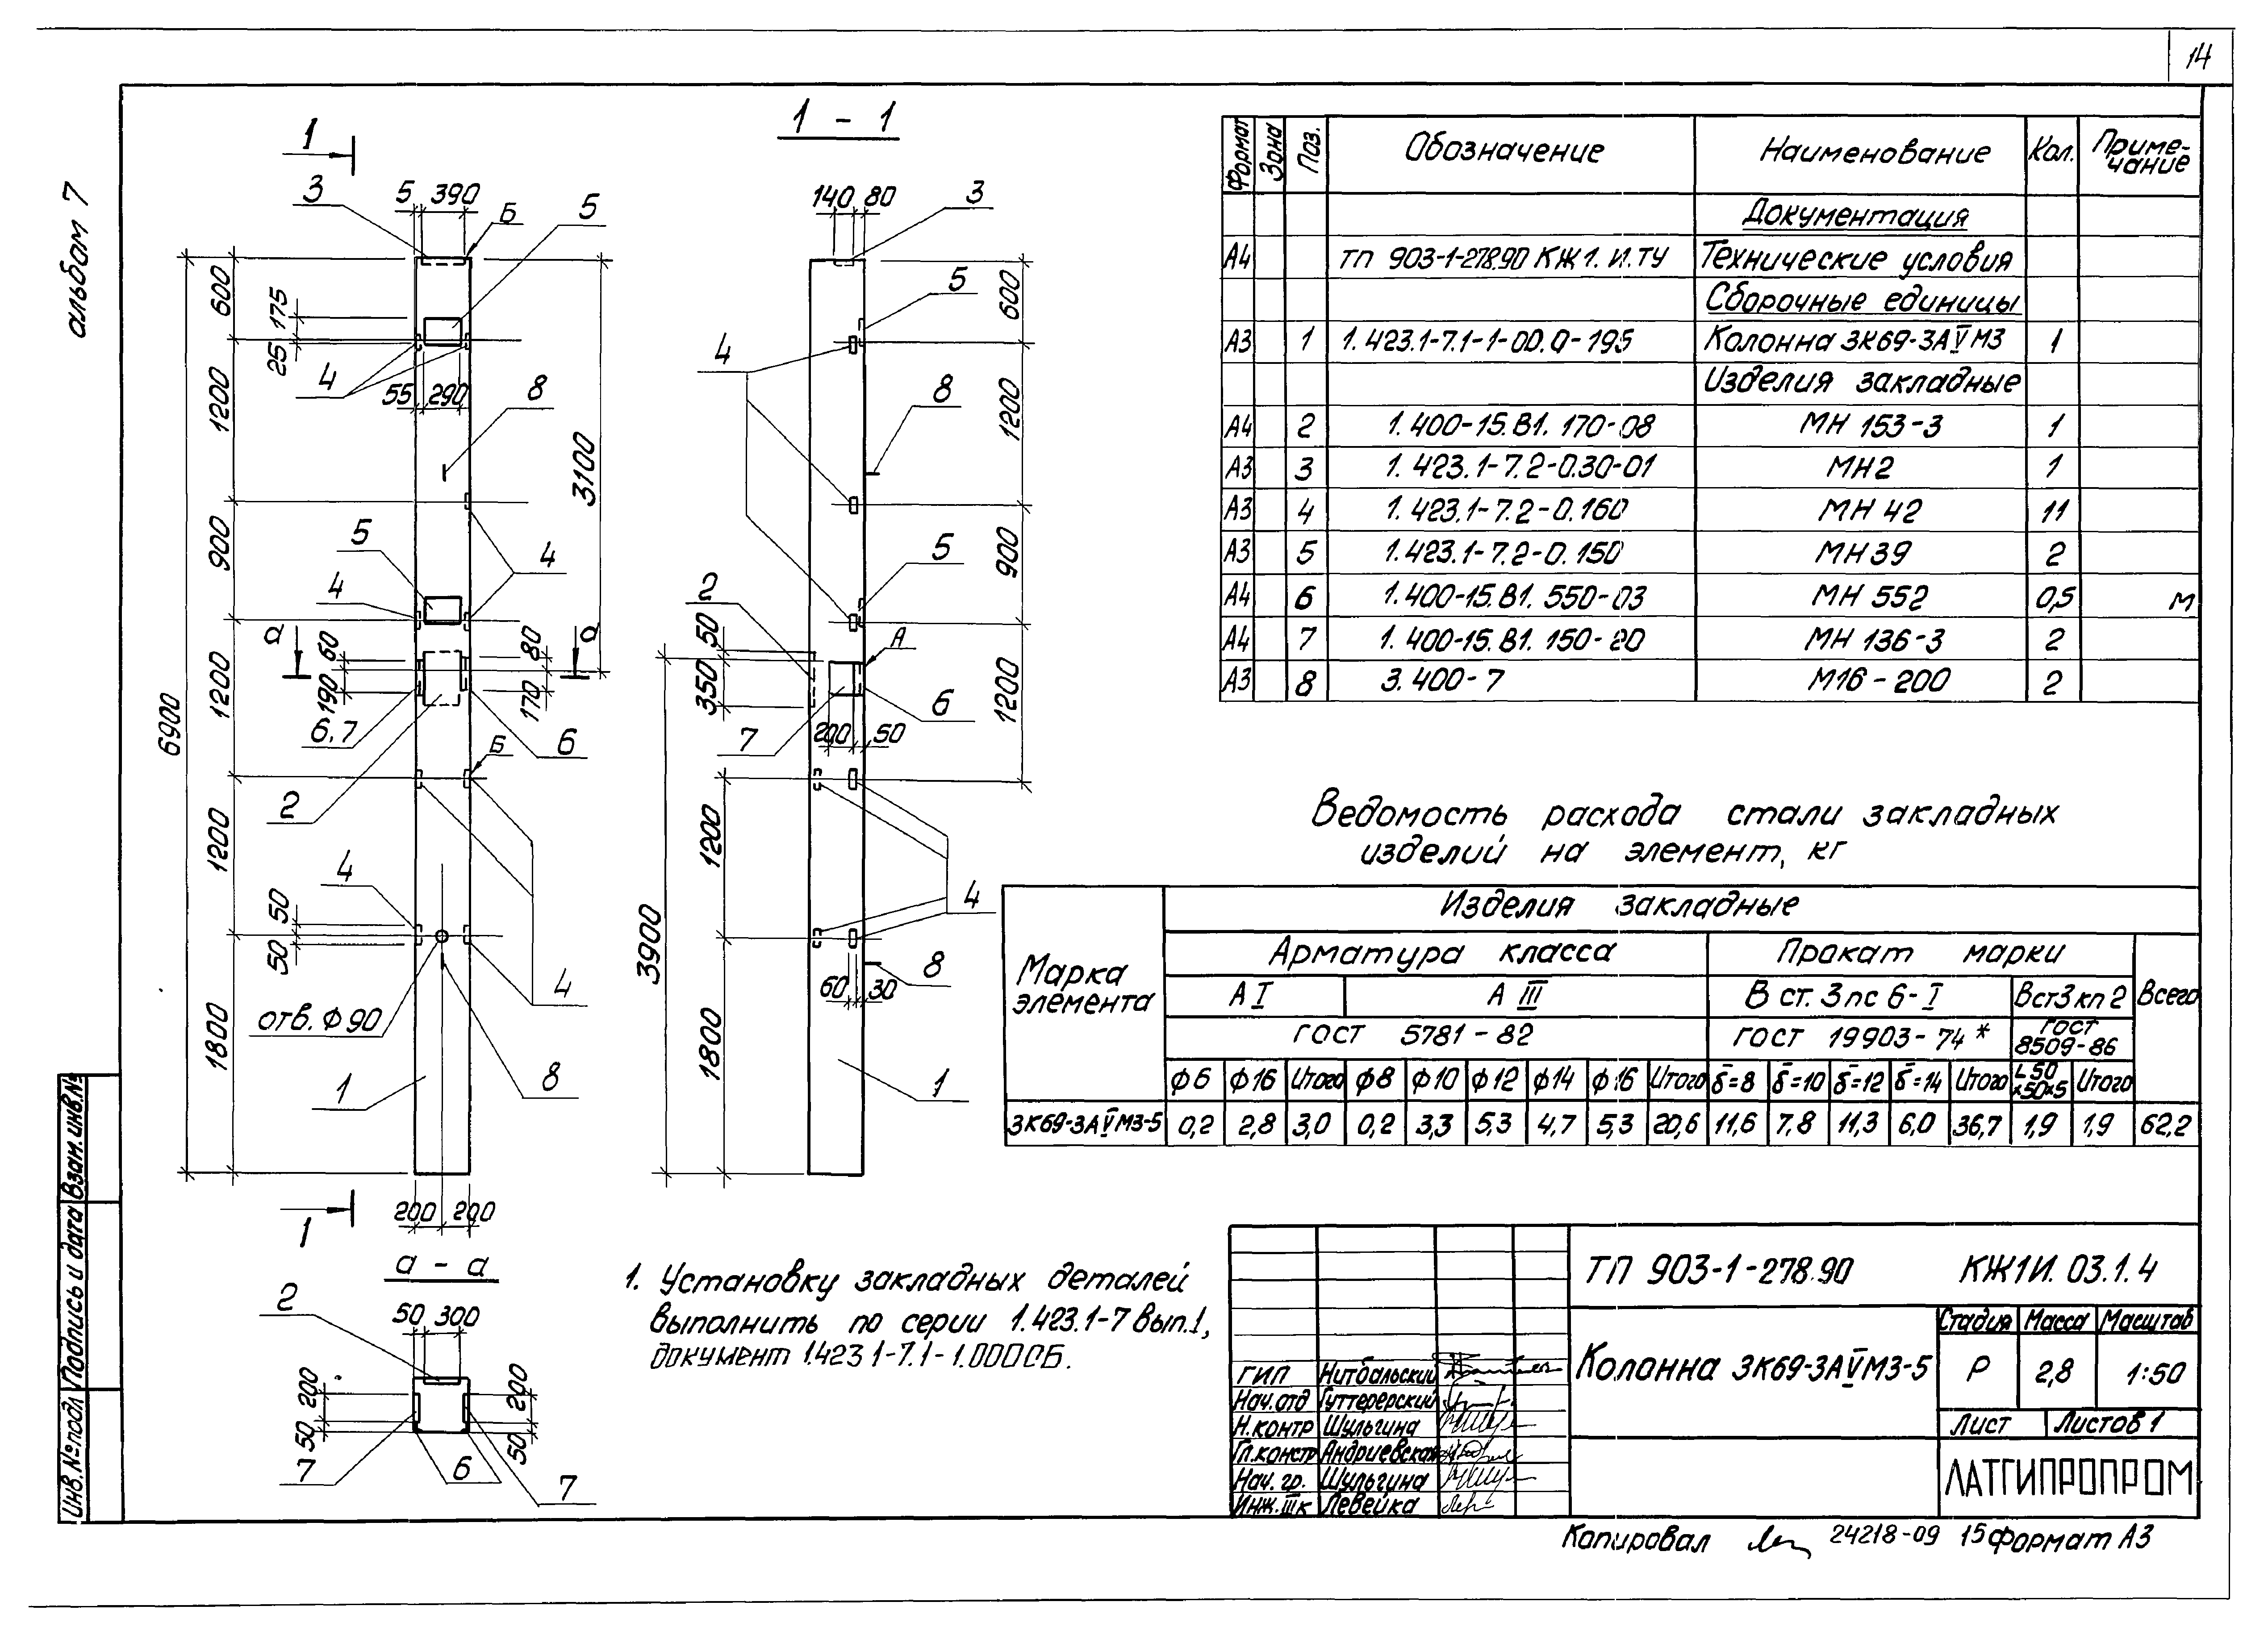 14
альбом 7
1
3
5 390
Б
5
600
175
25
4
55 290
8
1200
3100
900
5
4
4
а
а
60
190
80
170
6900
1200
6,7
6
Б
2
1200
4
50
50
4
отв. Ф90
8
1800
1
1
200 200
а - а
2
50 300
200
50
200
50
7
6
7
1 - 1
140 80
3
5
600
4
8
1200
5
900
2
50
350
А
6
7
200 50
1200
1200
4
3900
60 30
8
1800
1
Формат Зона Поз. Обозначение Наименование Кол. Приме-
чание
Документация
А4 ТП 903-1-278.90 КЖ1.И.ТУ Технические условия
Сборочные единицы
А3 1 1.423.1-7.1-1-00.0-195 Колонна 3К69-3АⅣМ3 1
Изделия закладные
А4 2 1.400-15.В1.170-08 МН 153-3 1
А3 3 1.423.1-7.2-0.30-01 МН2 1
А3 4 1.423.1-7.2-0.160 МН 42 11
А3 5 1.423.1-7.2-0.150 МН39 2
А4 6 1.400-15.В1.550-03 МН 552 0,5 м
А4 7 1.400-15.В1.150-20 МН 136-3 2
А3 8 3.400-7 М16-200 2
Ведомость расхода стали закладных
изделий на элемент, кг
Марка
элемента
Изделия закладные
Арматура класса Прокат марки Всего
А I А III В ст.3пс 6-I Вст3кп2
ГОСТ 5781-82 ГОСТ 19903-74* ГОСТ
8509-86
Ф6 Ф16 Итого Ф8 Ф10 Ф12 Ф14 Ф16 Итого δ=8 δ=10 δ=12 δ=14 Итого L50
×50×5 Итого
3К69-3АⅣМ3-5 0,2 2,8 3,0 0,2 3,3 5,3 4,7 5,3 20,6 11,6 7,8 11,3 6,0 36,7 1,9 1,9 62,2
1. Установку закладных деталей
выполнить по серии 1.423.1-7 вып.1,
документ 1.423 1-7.1-1.000СБ.
ТП 903-1-278.90 КЖ1И.03.1.4
Колонна 3К69-3АⅣМ3-5
Стадия Масса Масштаб
Р 2,8 1:50
Лист Листов 1
ЛАТГИПРОПРОМ
ГИП Нитбальский
Нач.отд Гуттерерский
Н.контр Шульгина
Гл.констр Андриевская
Нач. гр. Шульгина
Инж.IIIк Левейка
Инв.№подл Подпись и дата Взам.инв.№
Копировал 24218-09 15 формат А3